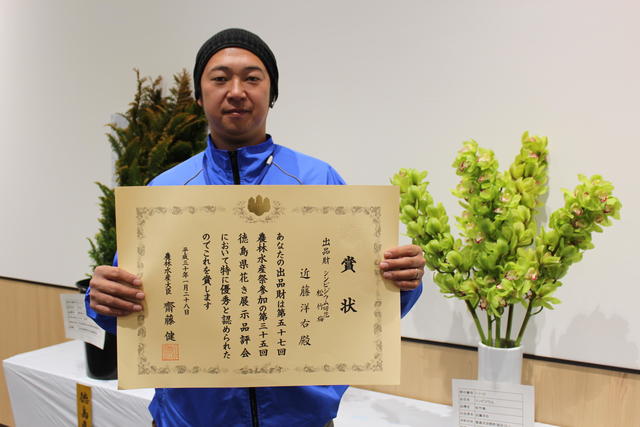 賞状
出品財 シンビジウム切花
松竹梅
近藤洋右殿
あなたの出品財は第五十七回
農林水産祭参加の第三十五回
徳島県花き展示品評会
において特に優秀と認められた
のでこれを賞します
平成三十年一月二十八日
農林水産大臣 齋藤健
徳島